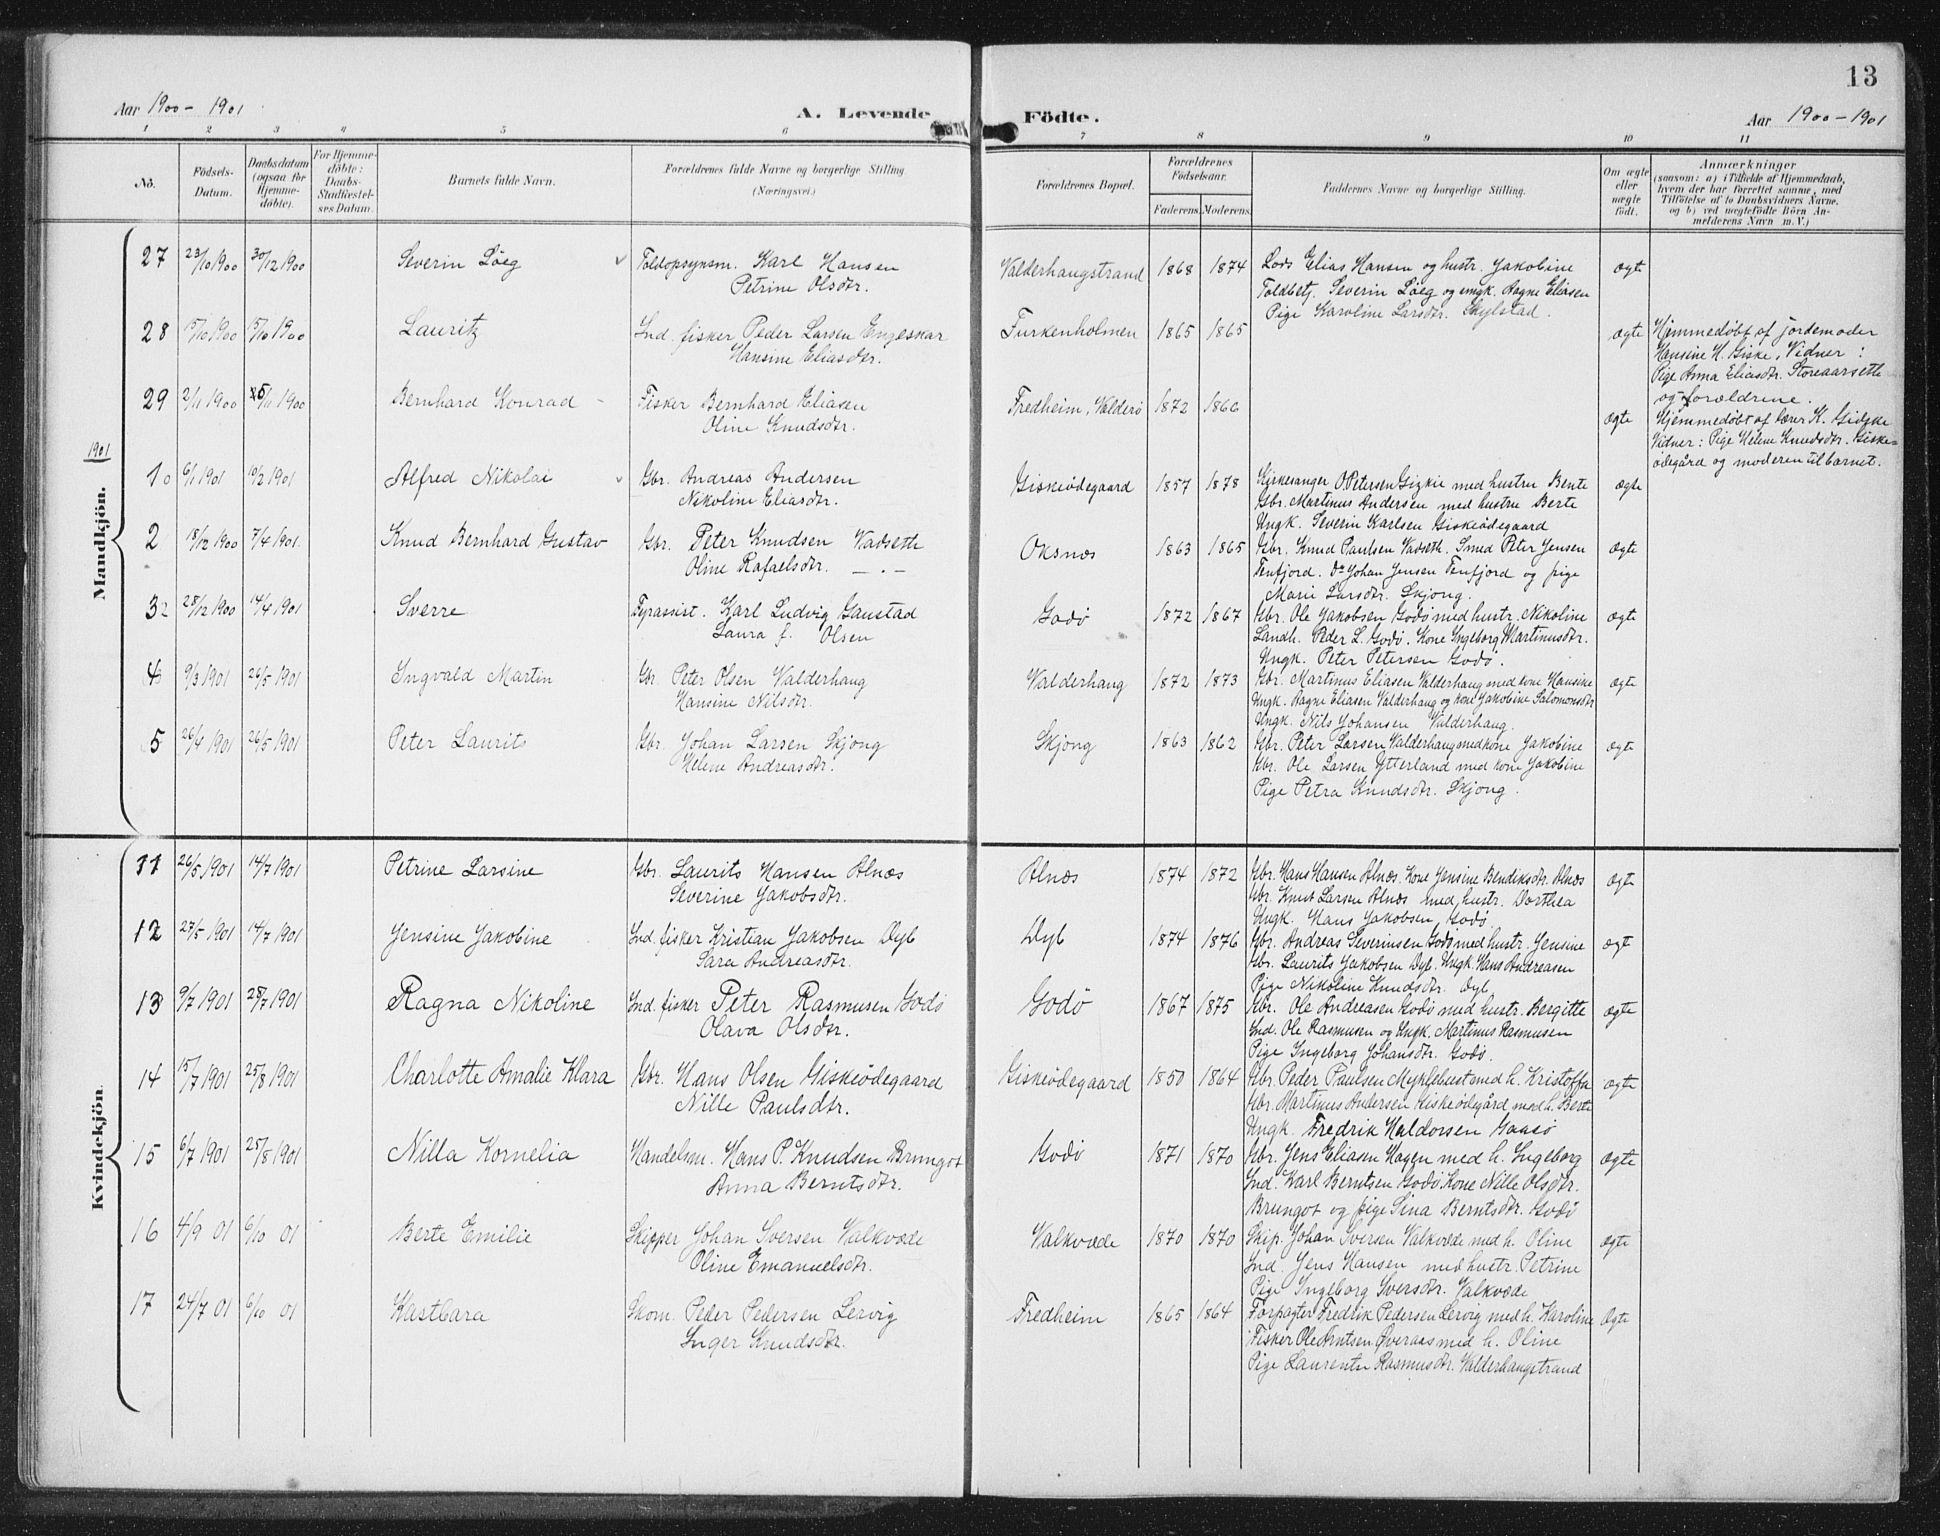 13
Aar 1900-1901 A. Levende Födte. Aar 1900-1901
1 2 3 4 5 6 7 8 9 10 11
No. Födsels-Datum. Daabsdatum (ogsaa for Hjemme-döbte). For Hjemme-döbte: Daabs-Stadfæstel-ses Datum. Barnets fulde Navn. Forældrenes fulde Navne og borgerlige Stilling (Næringsvei.) Forældrenes Bopæl. Forældrenes Födselsaar. Faderens. Moderens. Faddernes Navne og borgerlige Stilling. Om ægte eller uægte födt. Anmærkninger (saasom: a) i Tilfælde af Hjemmedaab, hvem der har forrettet samme, med Tilföielse af to Daabsvidners Navne. og b) ved uægtefödte Börn Anmelderens Navn m. V.)
Mandkjön.
27 23/10 1900 30/12 1900 Severin Löeg Toldopsynsm. Karl Hansen Valderhaugstrand 1868 1874 Lods Elias Hansen og hustr. Jakobine ægte
Petrine Olsdtr. Toldbetj. Severin Löeg og ungk. Ragne Eliasen
Pige Karoline Larsdtr. Skylstad.
28 15/10 1900 15/10 1900 Lauritz Ind. fisker Peder Larsen Engeskar Furkenholmen 1865 1865 ægte Hjemmedøbt af jordemoder
Hansine Eliasdtr. Hansine H. Giske, Vidner:
Pige Anna Eliasdtr. Storeaarseth
og forældrene.
29 2/11 1900 25/11 1900 Bernhard Konrad Fisker Bernhard Eliasen Fredheim, Valderö 1872 1866 ægte Hjemmedøbt af lærer K. Gidske
Oline Knudsdtr. Vidner: Pige Helene Knudsdtr. Giske-
ødegård og moderen til barnet.
1901
1 6/1 1901 10/2 1901 Alfred Nikolai Gbr. Andreas Andersen Giskeødegaard 1857 1878 Kirkesanger O. Petersen Gizkie med hustru Bente ægte
Nikoline Eliasdtr. Gbr. Martinus Andersen med hustru Berte
Ungk. Severin Karlsen Giskeødegaard
2 18/12 1900 7/4 1901. Knud Bernhard Gustav Gbr. Peter Knudsen Vadseth Oksnæs 1863 1865 Gbr. Knud Paulsen Vadseth. Smed Peter Jensen ægte
Oline Rafaelsdtr. —.— Tenfjord. Do Johan Jensen Tenfjord og pige
Marie Larsdtr. Skjong.
3 28/12 1900 14/4 1901 Sverre Fyrassist. Karl Ludvig Gaustad Godø 1872 1867 Gbr. Ole Jakobsen Godø med hustr. Nikoline ægte
Laura f. Olsen Landh. Peder L. Godø. Kone Ingeborg Martinusdtr.
Ungk. Peter Petersen Godø.
4 9/3 1901 26/5 1901 Ingvald Martin Gbr. Peter Olsen Valderhaug Valderhaug 1872 1873 Gbr. Martinus Eliasen Valderhaug med kone Hansine ægte
Hansine Nilsdtr. Ungk. Ragne Eliasen Valderhaug og kone Jakobine Salomonsdtr
Ungk. Nils Johansen Valderhaug.
5 26/4 1901 26/5 1901 Peter Laurits Gbr. Johan Larsen Skjong Skjong 1863 1862 Gbr. Peter Larsen Valderhaug med kone Jakobine ægte
Helene Andreasdtr. Gbr. Ole Larsen Ytterland med kone Jakobine
Pige Petra Knudsdtr. Skjong.
Kvindekjön
11 26/5 1901 14/7 1901 Petrine Larsine Gbr. Laurits Hansen Alnæs Alnæs 1874 1872 Gbr. Hans Hansen Alnæs. Kone Jensine Bendiksdtr. Alnæs ægte
Severine Jakobsdtr. Gbr. Knut Larsen Alnæs med hustr. Dorthea
Ungk. Hans Jakobsen, Godø
12 27/5 1901 14/7 1901 Jensine Jakobine Ind. fisker Kristian Jakobsen Dyb Dyb 1874 1876 Gbr. Andreas Severinsen Godø med hustr. Jensine ægte
Sara Andreasdtr. Gbr. Laurits Jakobsen Dyb. Ungk. Hans Andreasen
Pige Nikoline Knudsdtr. Dyb
13 9/7 1901 28/7 1901 Ragna Nikoline Ind. fisker Peter Rasmusen Godø Godø 1867 1875 Gbr. Ole Andreasen Godø med hustr. Bergitte ægte
Olava Olsdtr. Ind. Ole Rasmusen og Ungk. Martinus Rasmusen
Pige Ingeborg Johansdtr. Godø.
14 15/7 1901 25/8 1901 Charlotte Amalie Klara Gbr. Hans Olsen Giskeødegaard Giskeødegaard 1850 1864 Gbr. Peder Paulsen Myklebust med h. Kristoffa ægte
Nille Paulsdtr. Gbr. Martinus Andersen Giskeødegård med h. Berte
Ungk. Fredrik Haldorsen Gaasø
15 6/7 1901 25/8 1901 Nilla Kornelia Handelsm. Hans P. Knudsen Brungot Godø 1871 1870 Gbr. Jens Eliasen Hagen med h. Ingeborg ægte
Anna Berntsdtr. Ind. Karl Berntsen Godø, Kone Nille Olsdtr.
Brungot og pige Sina Berntsdtr. Godø
16 4/9 01 6/10 01 Berte Emilie Skipper Johan Iversen Valkvæde Valkvæde 1870 1870 Skip. Johan Iversen Valkvæde med h. Oline ægte
Oline Emanuelsdtr. Ind. Jens Hansen med hustr. Petrine
Pige Ingeborg Iversdtr. Valkvæde
17 24/7 01 6/10 01 Kastbara Skom. Peder Pedersen Lervig Fredheim 1865 1864 Forpagter Fredrik Pedersen Lervig med h. Karoline ægte
Inger Knudsdtr. Fisker Ole Arntsen Øveraas med h. Oline
Pige Laurentse Rasmusdtr. Valderhaugstrand